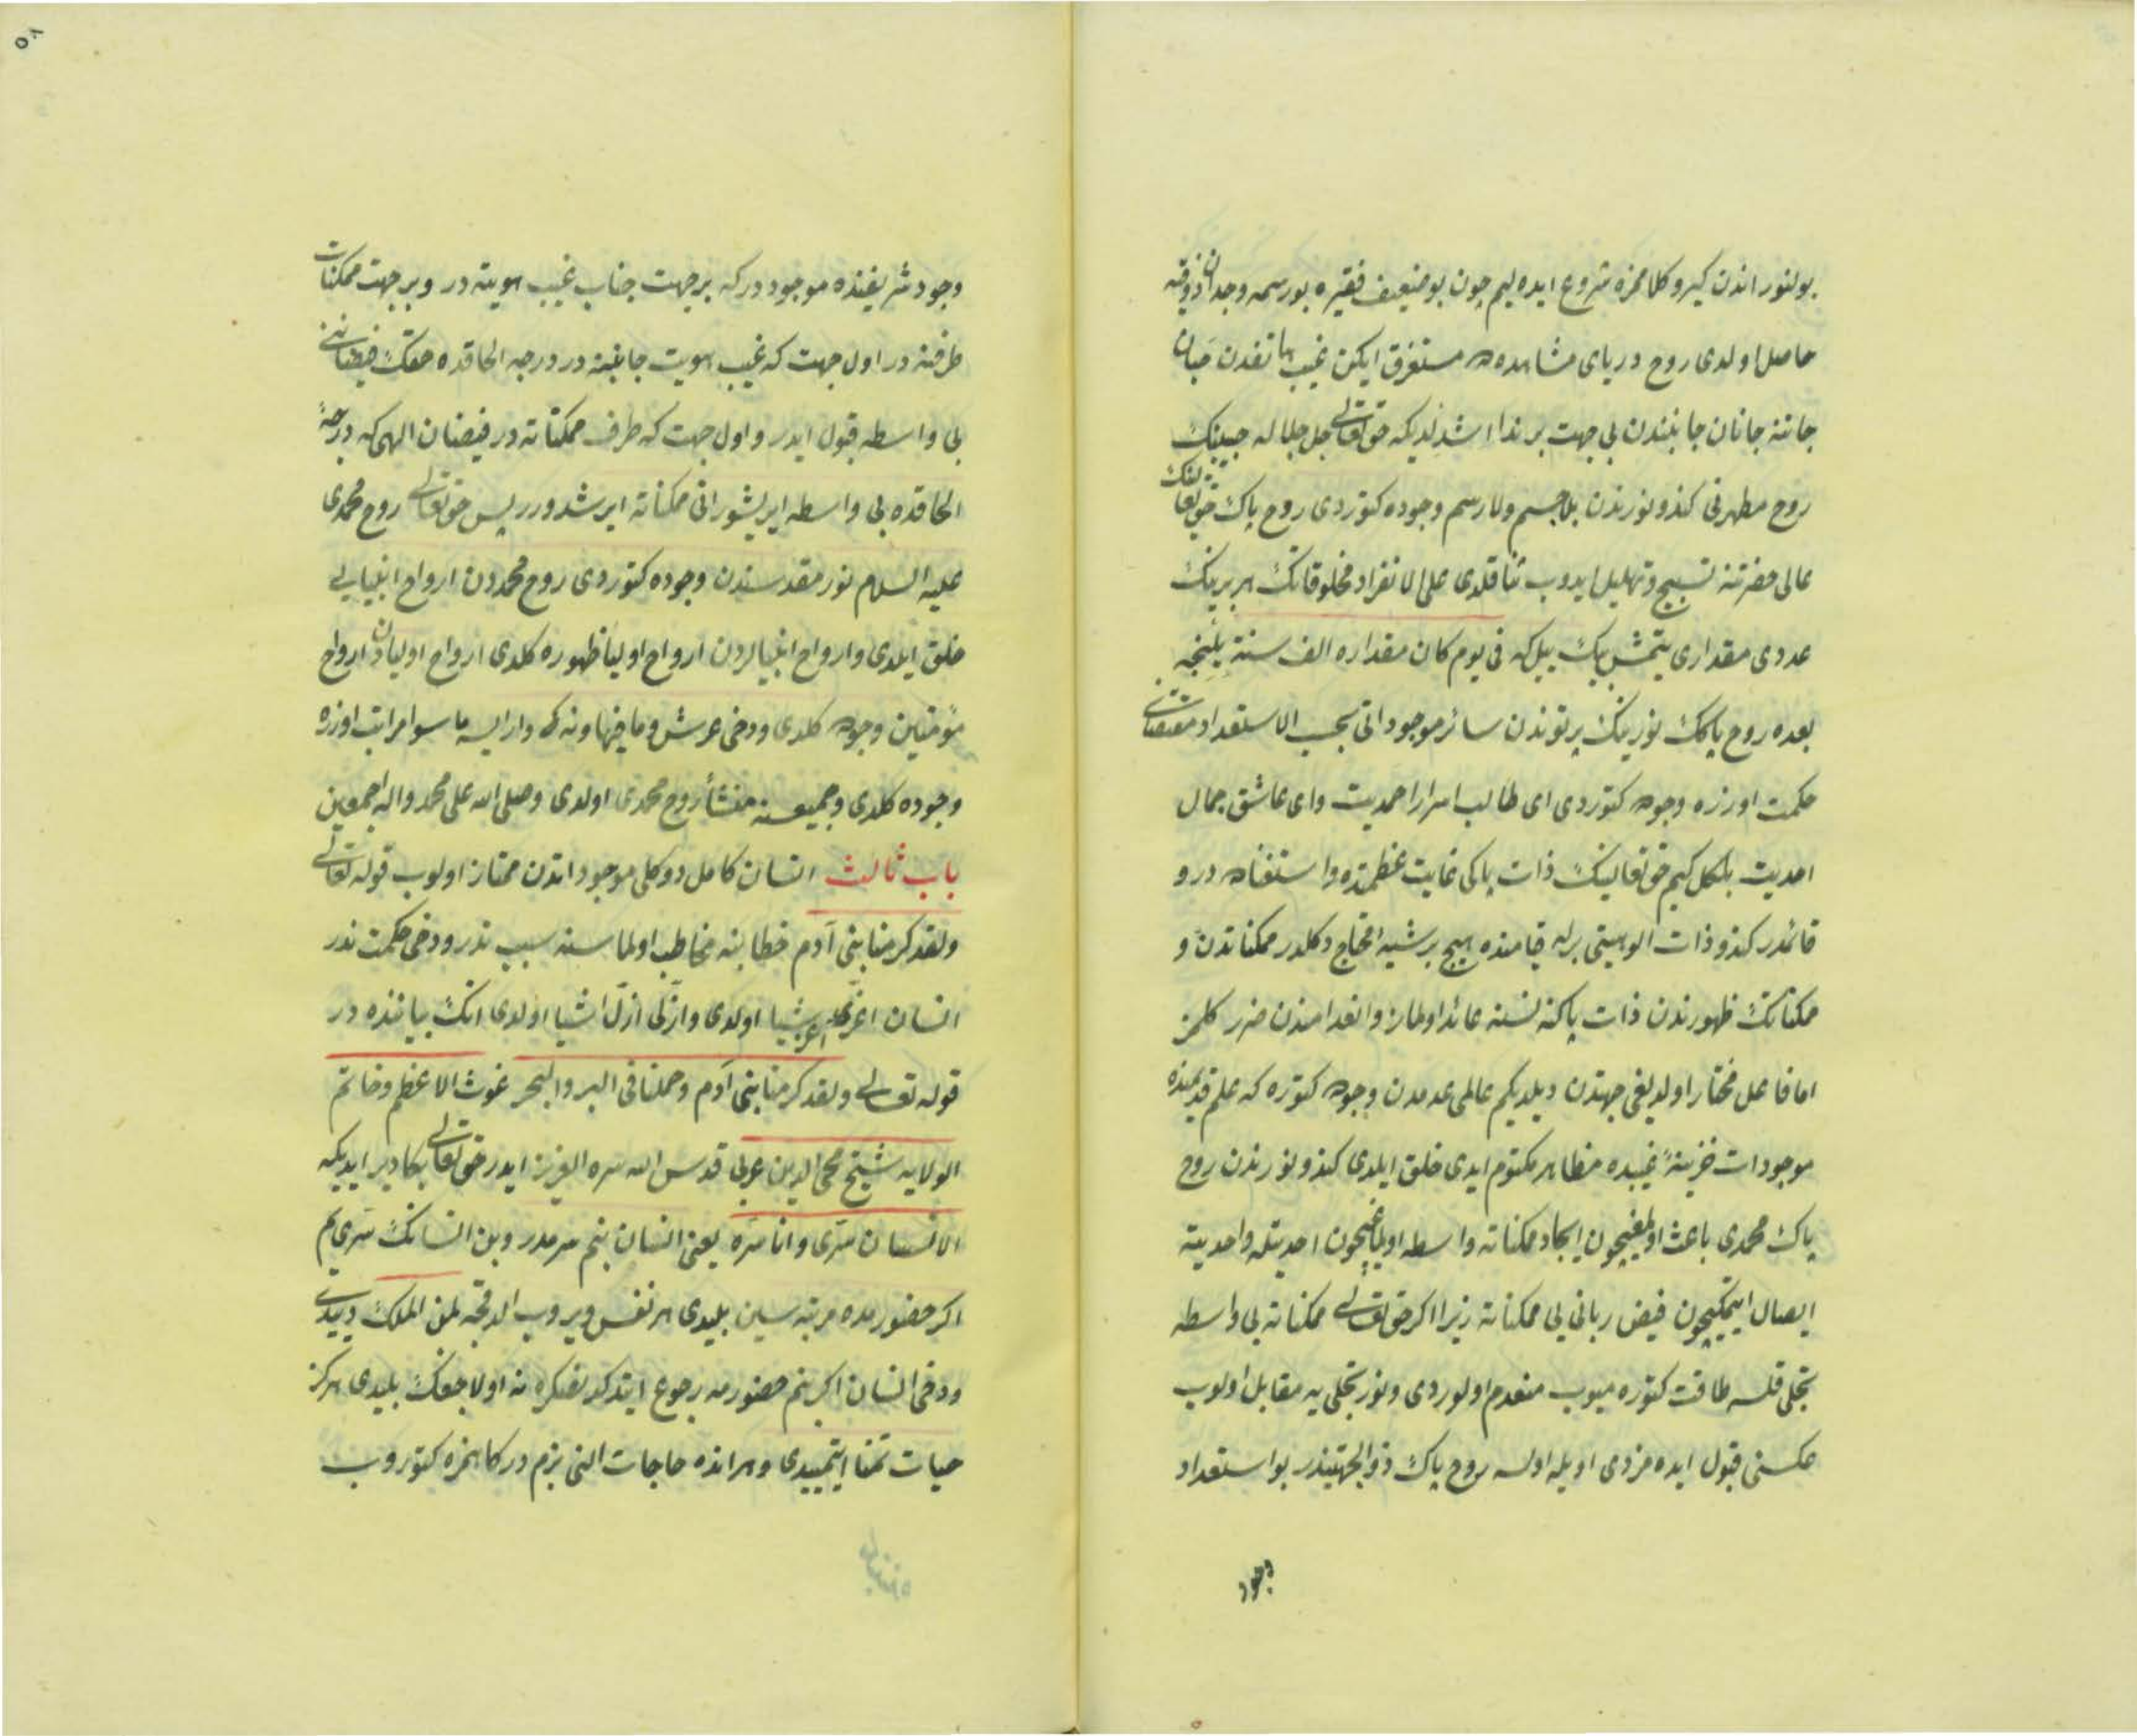 بولنور اندن كيرو كلامزه شروع ايده ليم چون بو ضعيف فقيره بو رسمه وجدان ذوقيه
حاصل اولدى روح درياى مشاهده ده مستغرق ايكن غيب هاتفدن جان
جاننه جانان جانبندن بى جهت بر ندا اشدلديكه حق تعالى جل جلاله حبيبنك
روح مطهرنى كندو نورندن بلا جسم ولا رسم وجوده كتوردى روح پاك حق تعالينك
عالى حضرتنه تسبيح وتهليل ايدوب ثنا قلدى على الانفراد مخلوقاتك هر برينك
عددى مقدارى يتمش بيك ييل كه فى يوم كان مقداره الف سنة يلنجه
بعده روح پاكك نورينك پرتوندن سائر موجوداتى بحسب الاستعداد مقتضاى
حكمت اوزره وجوده كتوردى اى طالب اسرار احمديت واى عاشق جمال
احديت بلكل كيم حق تعالينك ذات پاكى غايت عظمتده واستغناده در و
قائمدر كندو ذات الوهيتى برله قيامنده هيچ بر شيئه محتاج دكلدر ممكناتدن و
ممكناتك ظهورندن ذات پاكنه نسنه عائد اولماز وانعدامندن ضرر كلمز
اما فاعل مختار اولديغى جهتدن ديلديكم عالمى عدمدن وجوده كتوره كه علم قديمنده
موجودات خزينهٔ غيبده مظاهر مكتوم ايدى خلق ايلدى كندو نورندن روح
پاك محمدى باعث اولمغيچون ايجاد ممكناته واسطه اولمغيچون احديتله واحديته
ايصال ايتمكيچون فيض ربانى يى ممكناته زيرا اكر حق تعالى ممكناته بى واسطه
تجلى قلسه طاقت كتوره ميوب منعدم اولوردى ونور تجلى يه مقابل اولوب
عكسنى قبول ايده مزدى اويله اولسه روح پاك ذو الجهتيندر بو استعداد
وجود
٥٨
وجود شريفنده موجوددركه بر جهت جناب غيب هويته در وبر جهت ممكنات
طرفنه در اول جهت كه غيب هويت جانبنه در درجه الحاقده حقك فيضاننى
بى واسطه قبول ايدر واول جهت كه طرف ممكناته در فيضان الهى كه درجهٔ
الحاقده بى واسطه ايريشور انى ممكناته ايرشدورر پس حق تعالى روح محمدى
عليه السلام نور مقدسندن وجوده كتوردى روح محمددن ارواح انبيايى
خلق ايلدى وارواح انبيالردن ارواح اوليا ظهوره كلدى ارواح اوليادن ارواح
مؤمنين وجوده كلدى ودخى عرش وما فيها ونه كه وار ايسه ما سوا مراتب اوزره
وجوده كلدى وجميعسنه منشأ روح محمدى اولدى وصلى الله على محمد واله اجمعين
باب ثالث انسان كامل دوكلى موجوداتدن ممتاز اولوب قوله تعالى
ولقد كرمنا بنى آدم خطابنه مخاطب اولماسنه سبب ندر ودخى حكمت ندر
انسان اعزى اعز اشيا اولدى واذلى اذل اشيا اولدى انك بياننده در
قوله تعالى ولقد كرمنا بنى آدم وحملنا فى البر والبحر غوث الاعظم وخاتم
الولايه شيخ محى الدين عربى قدس الله سره العزيز ايدر حق تعالى بكا دير ايديكه
الانسان سرى وانا سره يعنى انسان بنم سرمدر وبن انسانك سرى يم
اكر حضورمده مرتبه سين بليدى هر نفس ويروب الدقجه لمن الملك ديردى
ودخى انسان اكر بنم حضورمه رجوع ايتدكدنصكره نه اولاجغك بليدى هركز
حيات تمنا ايتميدى وهر انده حاجات النى بزم دركاهمزه كتوروب